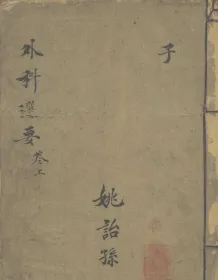 子
外科選要 卷上
姚詒孫